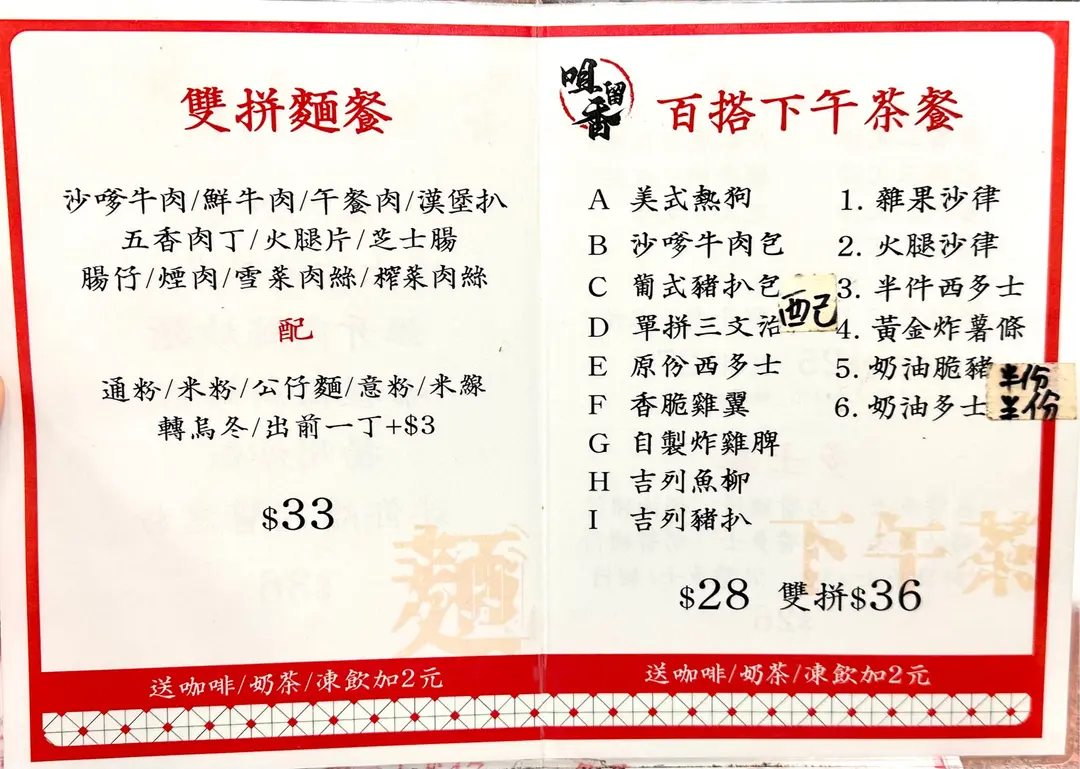 雙拼麵餐
沙嗲牛肉/鮮牛肉/午餐肉/漢堡扒
五香肉丁/火腿片/芝士腸
腸仔/煙肉/雪菜肉絲/榨菜肉絲
配
通粉/米粉/公仔麵/意粉/米線
轉烏冬/出前一丁+$3
$33
麵
送咖啡/奶茶/凍飲加2元
咀留香
百搭下午茶餐
A 美式熱狗
B 沙嗲牛肉包
C 葡式豬扒包
D 單拼三文治
E 原份西多士
F 香脆雞翼
G 自製炸雞脾
H 吉列魚柳
I 吉列豬扒
配
1. 雜果沙律
2. 火腿沙律
3. 半件西多士
4. 黃金炸薯條
5. 奶油脆豬 半份
6. 奶油多士 半份
$28 雙拼$36
下午茶
送咖啡/奶茶/凍飲加2元